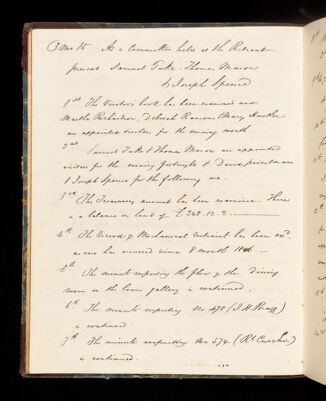 3 Mo 15 At a Committee held at the Retreat
present Samuel Tuke Thomas Mason
& Joseph Spence
1st The Visitors book has been examined and
Martha Richardson, Deborah Ransome & Mary
are appointed visitors for the ensuing month
2nd Samuel Tuke & Thomas Mason are appointed
visitors for the ensuing fortnight & David Priestman
& Joseph Spence for the following one.
3rd The Treasurers account has been examined. There
is a balance in hand of £248.12.2.
4th The Record of Mechanical restraint has been exd.
no one has occurred since 8 month
5th The minute respecting the floor of the dining
room in the lower gallery is continued.
6th The minute respecting No. 478 (J H)
is continued
7th The minute respecting No 574. (Rt)
is continued.